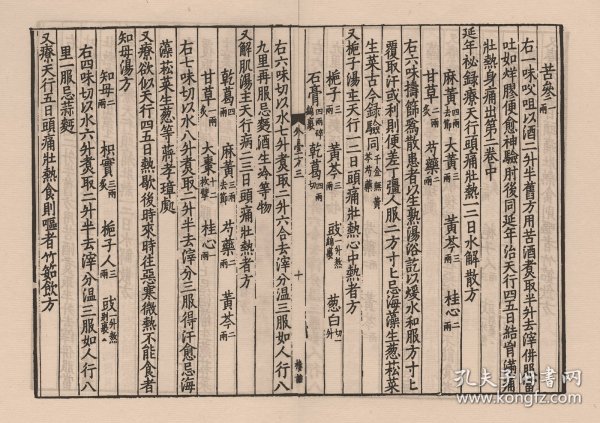 苦參一兩
右一味㕮咀以酒二升半舊方用苦酒煮取半升去滓併服當
吐如烊膠便愈神驗肘後同延年治天行四五日結胷滿痛
壯熱身痛出第二卷中
延年秘録療天行頭痛壯熱一二日水解散方
麻黄四兩去節 大黄三兩 黄芩三兩 桂心二兩
甘草二兩炙 芍藥二兩
右六味擣篩為散患者以生熟湯浴訖以緩水和服方寸匕
覆取汗或利則便差丁彊人服二方寸匕忌海藻生葱菘菜
生菜古今録驗同
又梔子湯主天行一二日頭痛壯熱心中熱者方
梔子三兩 黄芩三兩 豉一升熬綿裹 葱白切一升
石膏四兩碎綿裹 乾葛四兩切
右六味切以水七升煮取二升六合去滓分温三服如人行八
九里再服忌麫酒生冷等物
又解肌湯主天行病二三日頭痛壯熱者方
乾葛四兩 麻黄三兩去節 芍藥二兩 黄芩二兩
甘草一兩炙 大棗十二枚擘 桂心一兩
右七味切以水八升煮取二升半去滓分三服得汗愈忌海
藻菘菜生葱等蔣孝璋處
又療欲似天行四五日熱歇後時來時往惡寒微熱不能食者
知母湯方
知母二兩 枳實三兩炙 梔子人三兩 豉一升熬
右四味切以水六升煮取二升半去滓分温三服如人行八
里一服忌蒜麫
又療天行五日頭痛壯熱食則嘔者竹茹飲方
外臺方三
十
孔夫子旧书网
www.kongfz.com